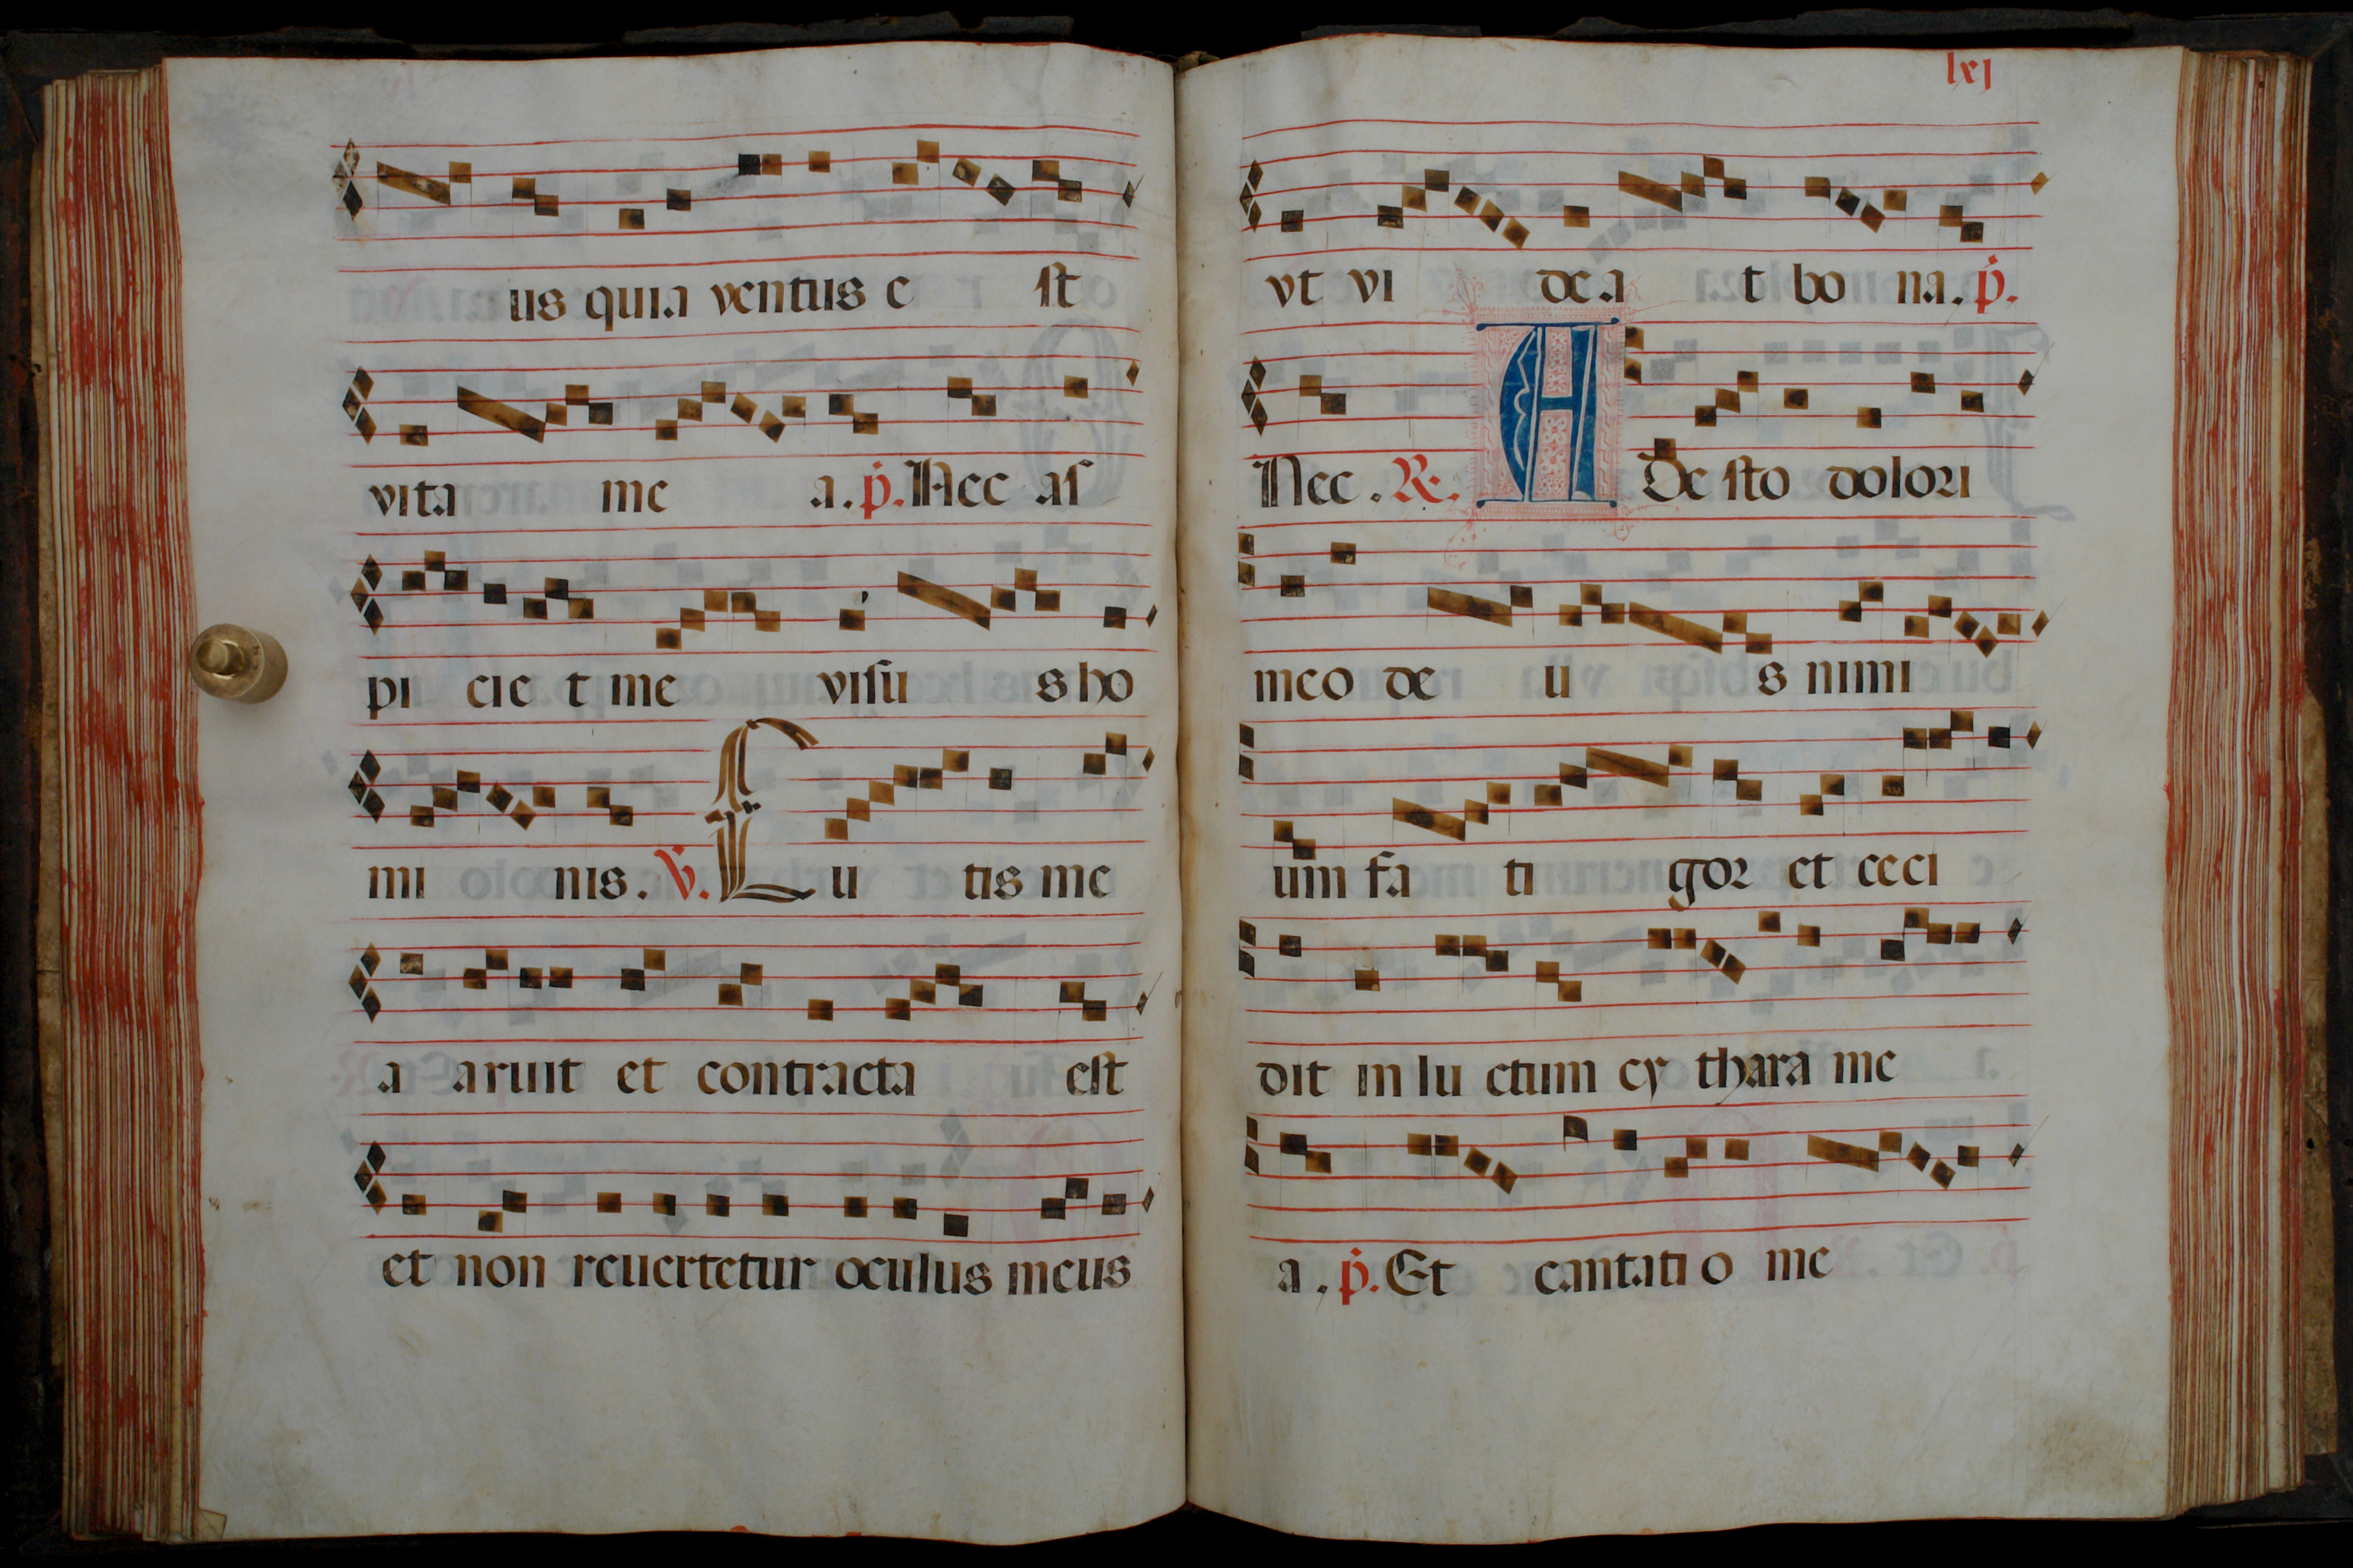 us quia ventus e st
vita me a. p̃. Nec as
pi cie t me visu s ho
mi nis. ℣. Cu tis me
a aruit et contracta est
et non reuertetur oculus meus
lxj
vt vi de a t bo na. p̃.
Nec. ℟. A De sto dolori
meo de u s nimi
um fa ti gor et ceci
dit in lu ctum cy thara me
a. p̃. Et cantati o me